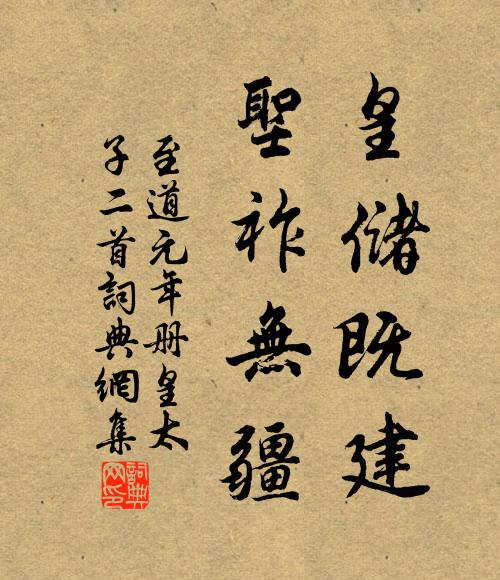 皇儲既建
聖祚無疆
至道元年册皇太
子二首詞典網集
詞典網印